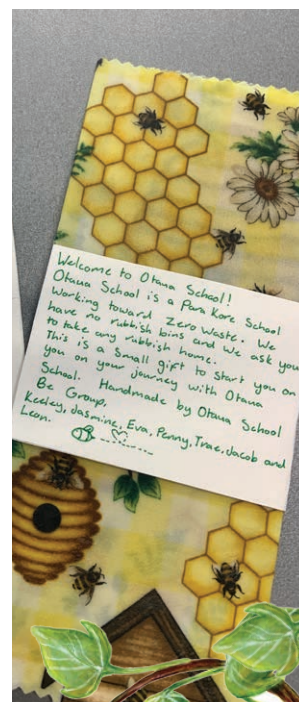 Welcome to Otaua School!
Otaua School is a Para Kore School
Working toward Zero Waste. We
have no rubbish bins and we ask you
to take any rubbish home.
This is a small gift to start you on
you on your journey with Otaua
School. Handmade by Otaua School
Be Group,
Keeley, Jasmine, Eva, Penny, Trae, Jacob and
Leon.